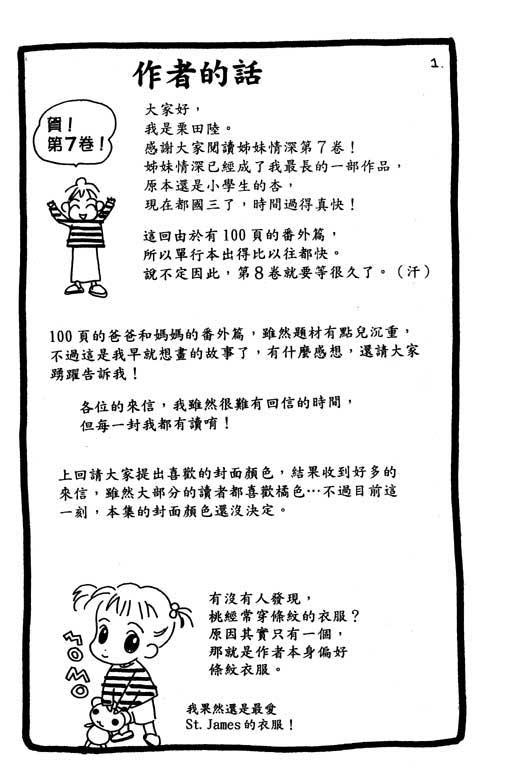 作者的話
1.
賀！
第7卷！
大家好，
我是栗田陸。
感謝大家閱讀姊妹情深第7卷！
姊妹情深已經成了我最長的一部作品，
原本還是小學生的杏，
現在都國三了，時間過得真快！
這回由於有100頁的番外篇，
所以單行本出得比以往都快。
說不定因此，第8卷就要等很久了。（汗）
100頁的爸爸和媽媽的番外篇，雖然題材有點兒沉重，
不過這是我早就想畫的故事了，有什麼感想，還請大家
踴躍告訴我！
各位的來信，我雖然很難有回信的時間，
但每一封我都有讀唷！
上回請大家提出喜歡的封面顏色，結果收到好多的
來信，雖然大部分的讀者都喜歡橘色…不過目前這
一刻，本集的封面顏色還沒決定。
有沒有人發現，
桃經常穿條紋的衣服？
原因其實只有一個，
那就是作者本身偏好
條紋衣服。
MOMO
我果然還是最愛
St. James的衣服！